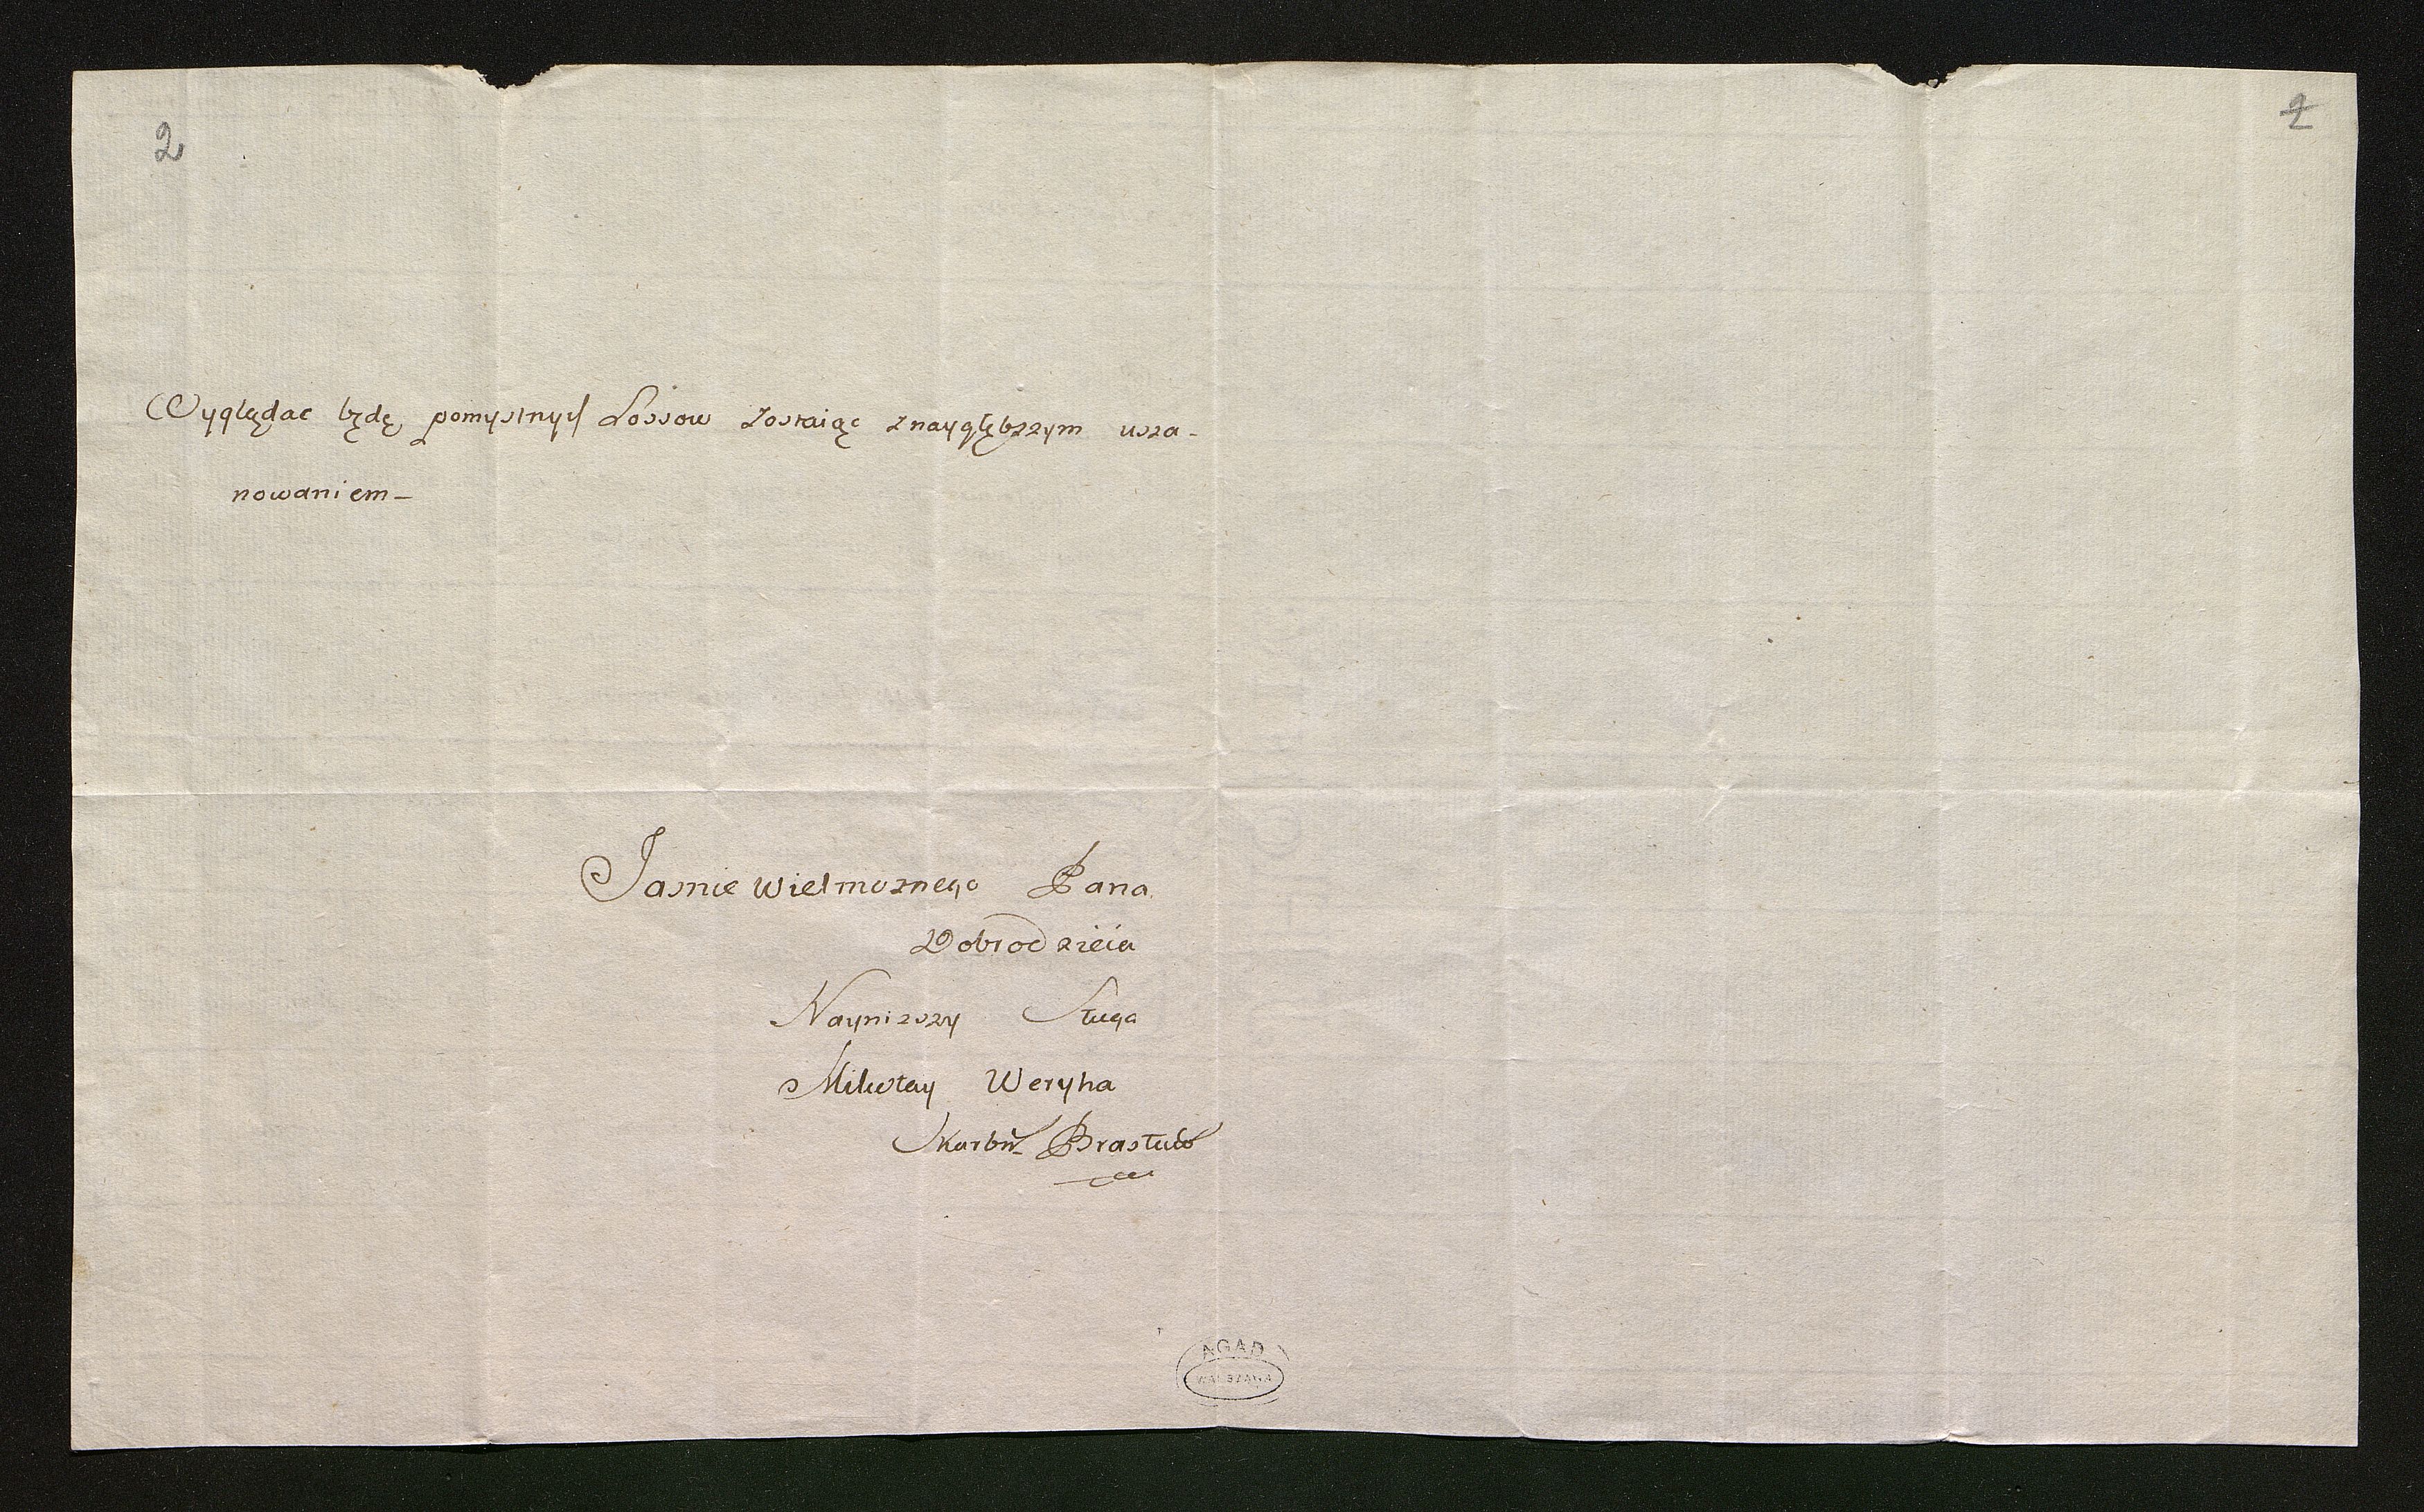 2
2
Wyglądac będę pomyslnych Lossow zostaiąc znaygłębszym usza-
nowaniem-
Jasnie Wielmoznego Pana
Dobrodzieia
Nayniszszy Sługa
Mikołay Weryha
Skarbn Brasław
AGAD
WARSZAWA